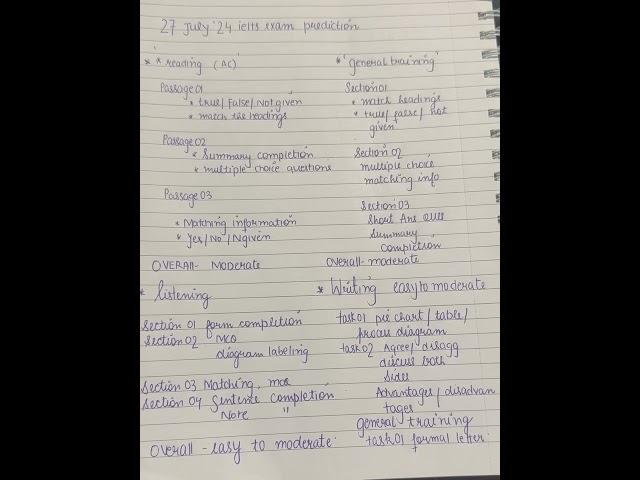 27 July '24 ielts exam prediction
* * reading (AC)
Passage 01
* true/false/Not given
* match the headings
Passage 02
* Summary completion
* multiple choice questions
Passage 03
* Matching information
* Yes/No/Ngiven
OVERALL- MODERATE
* 'general training'
Section 01
* match headings
* true/false/not
given
Section 02
multiple choice
matching info
Section 03
Short Ans ques
Summary
completion
Overall- moderate
* listening
Section 01 form completion
Section 02 MCQ
diagram labeling
Section 03 Matching, mcq
Section 04 Sentence completion
Note "
Overall - easy to moderate.
* Writing easy to moderate
task01 pie chart/table/
process diagram
task02 Agree/disagg
discuss both
sides
Advantages/disadvan
tages
general training
task01 formal letter.